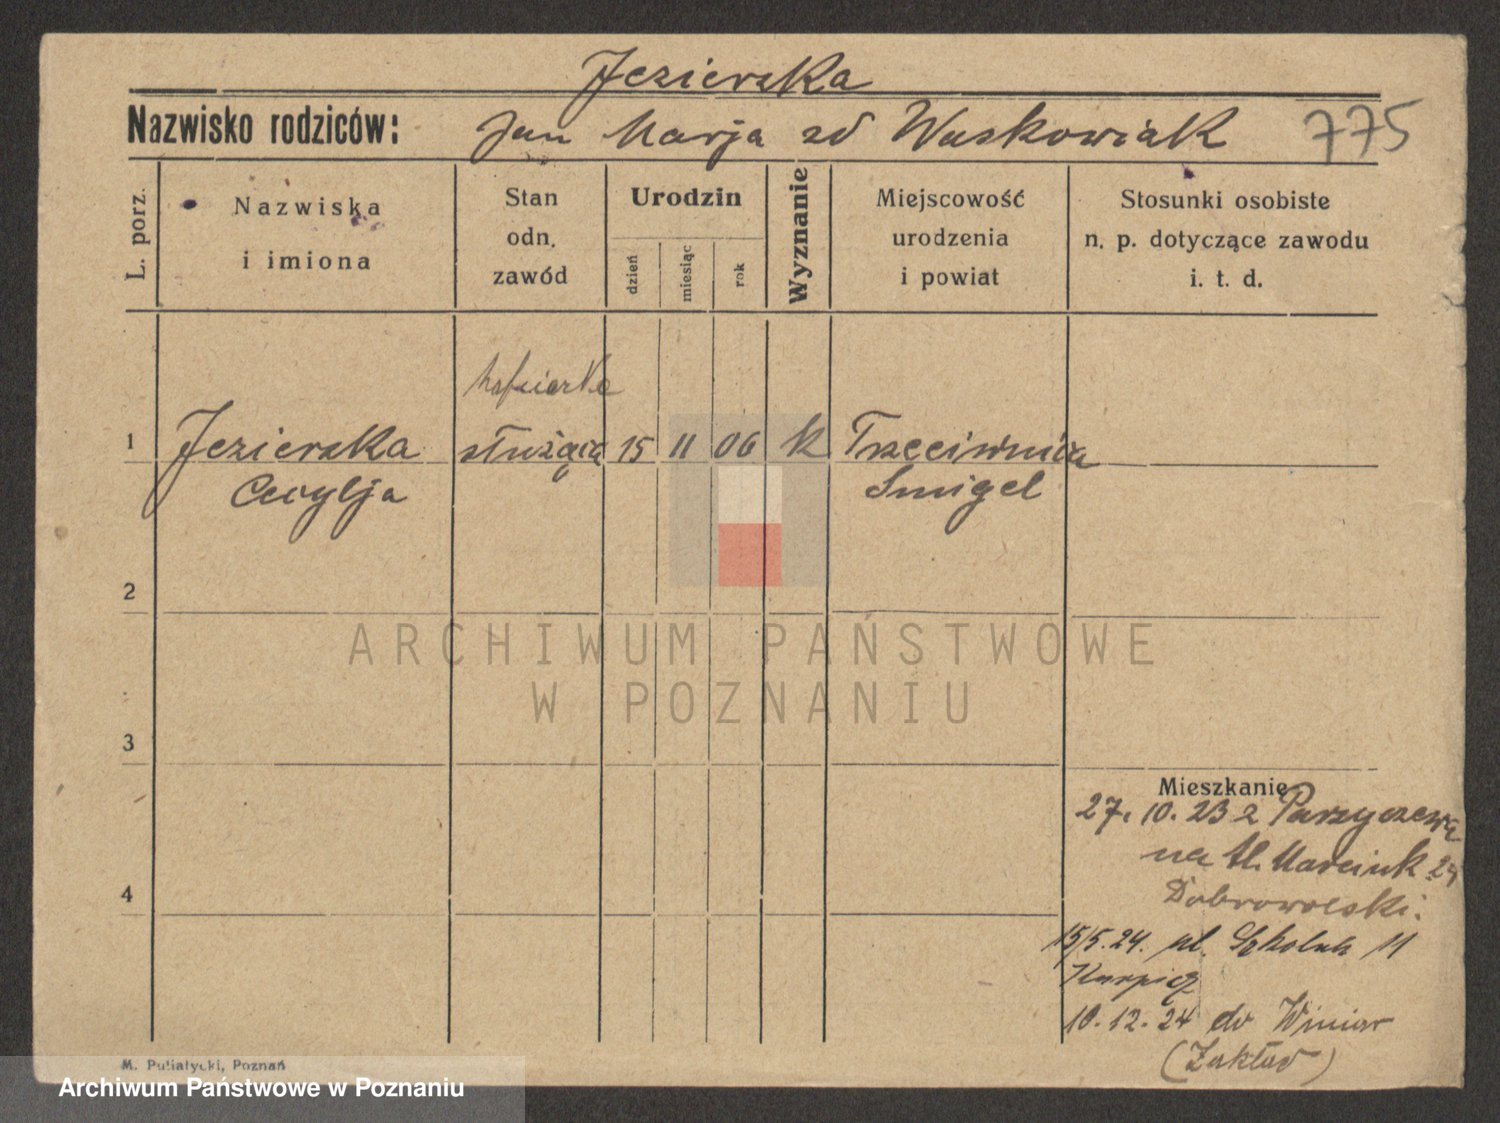 Jezierska
Nazwisko rodziców: Jan Marja zd Waskowiak 775
L. porz.
Nazwiska
i imiona
Stan
odn.
zawód
Urodzin
dzień
miesiąc
rok
Wyznanie
Miejscowość
urodzenia
i powiat
Stosunki osobiste
n. p. dotyczące zawodu
i. t. d.
1 Jezierska służąca 15 11 06 k Trzeciwnica
Cecylja Smigel
2
ARCHIWUM PAŃSTWOWE
W POZNANIU
3
Mieszkanie
27. 10. 23 z Parzyczewa
na Św. Marcink 24
Dobrowolski.
4
15/5.24. ul. Szkolnk 11
10.12.24 do Winiar
(Zakład)
M. Putiatycki, Poznań
Archiwum Państwowe w Poznaniu